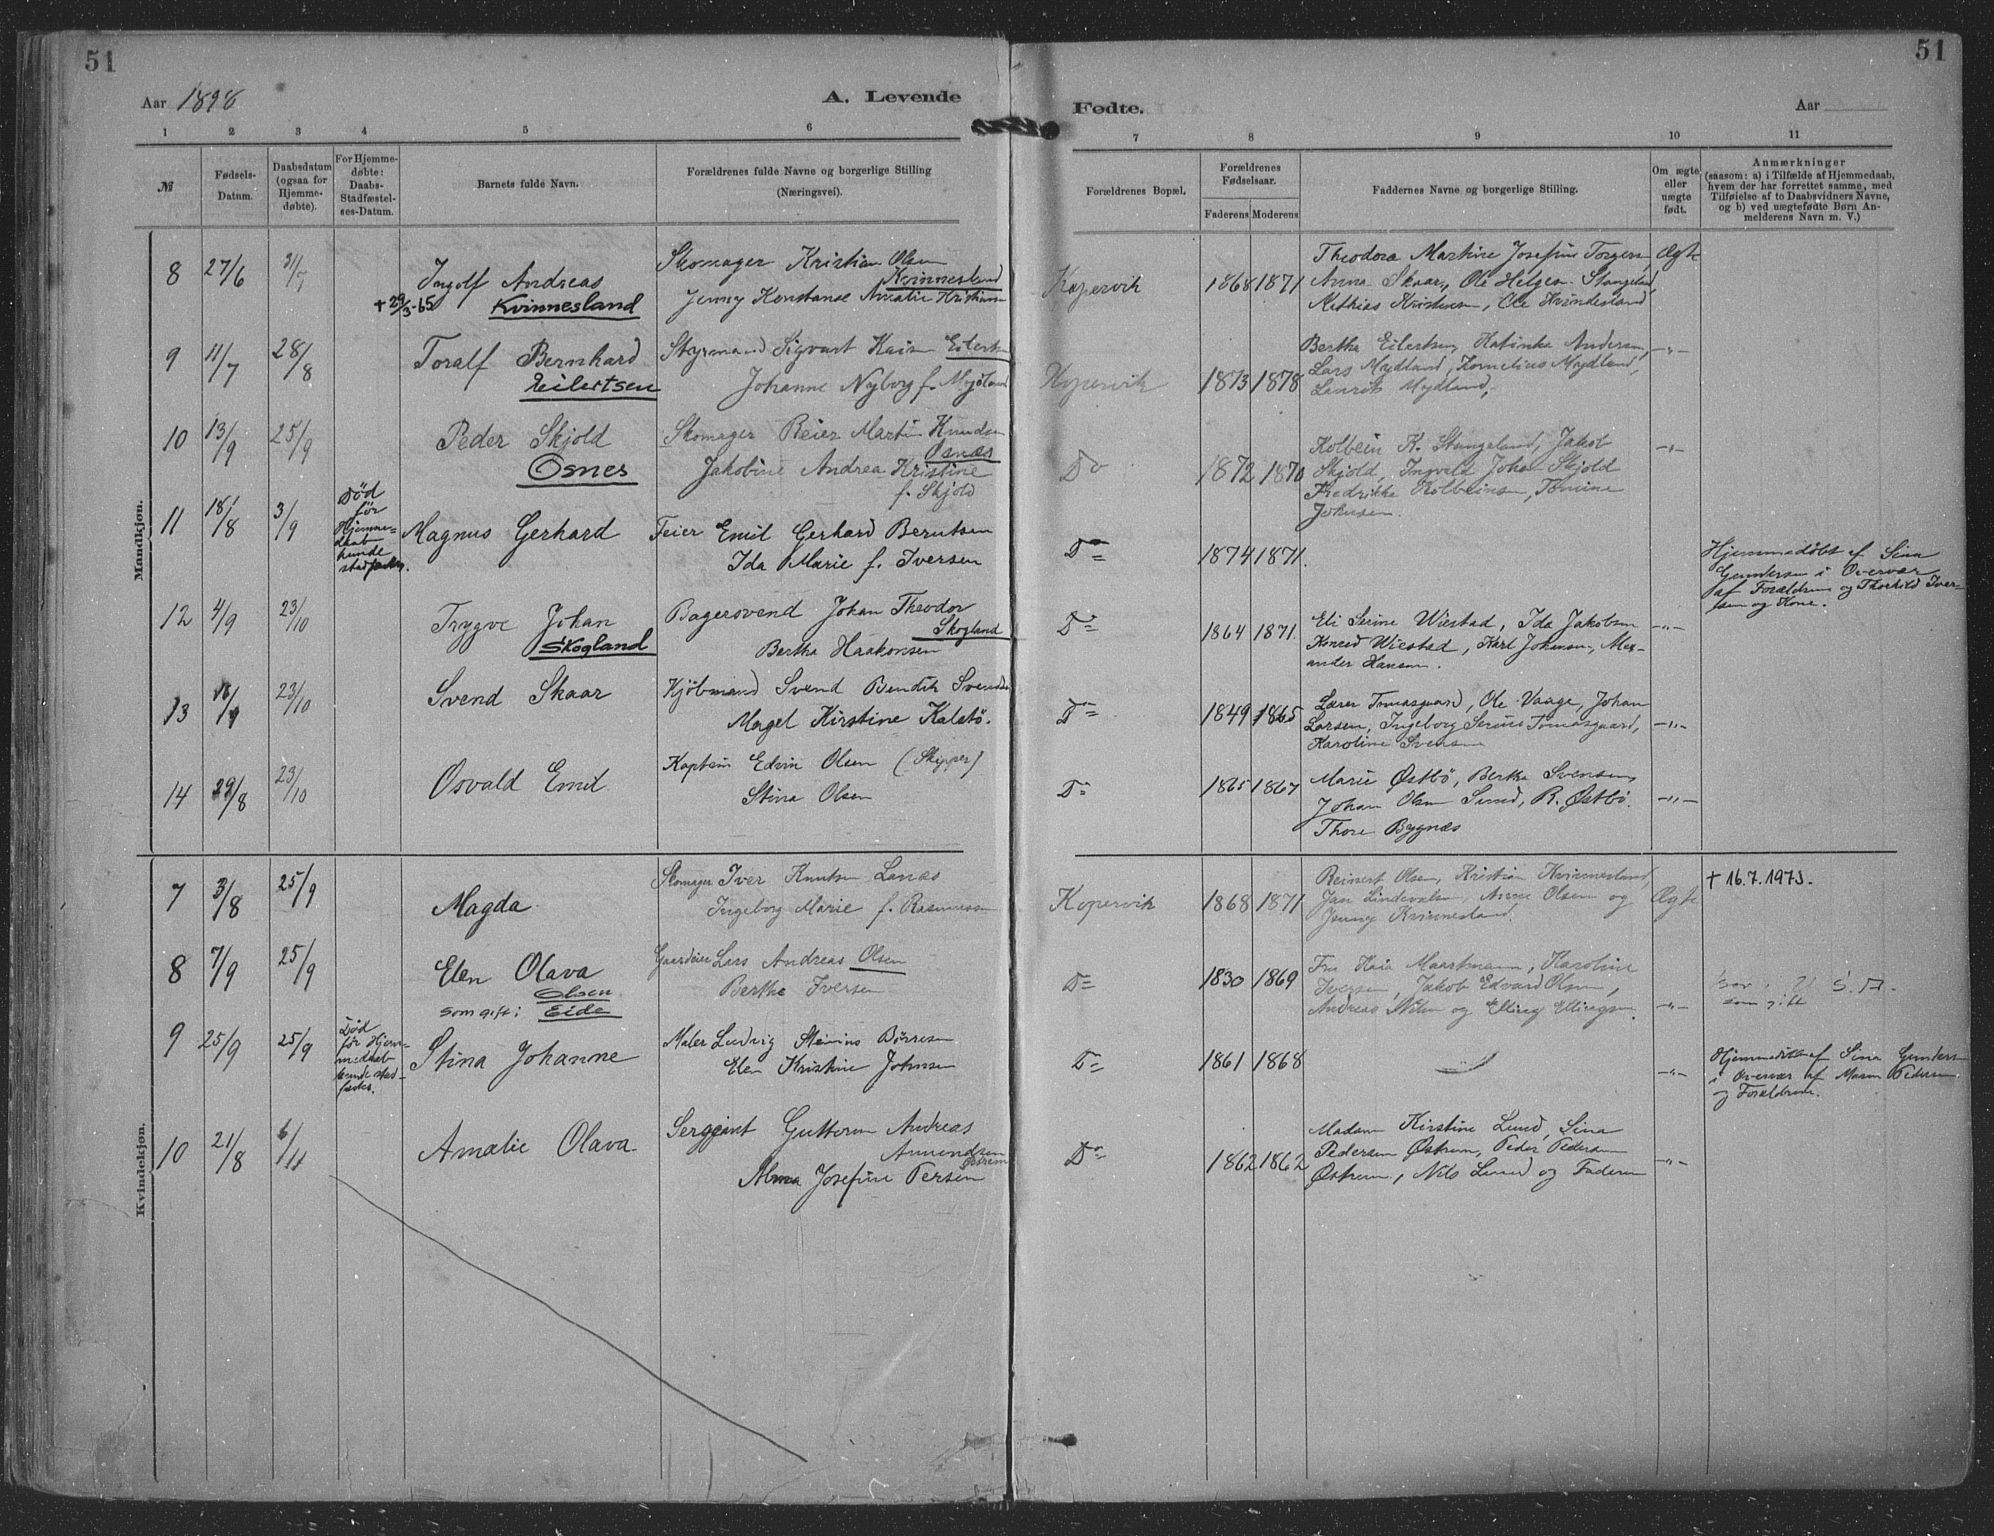 51
51
Aar 1898
A. Levende
Fødte.
Aar
1 2 3 4 5 6 7 8 9 10 11
№
Fødsels-
Datum.
Daabsdatum
(ogsaa for
Hjemme-
døbte).
For Hjemme-
døbte:
Daabs-
Stadfæstel-
ses-Datum.
Barnets fulde Navn.
Forældrenes fulde Navne og borgerlige Stilling
(Næringsvei).
Forældrenes Bopæl.
Forældrenes
Fødselsaar.
Faderens Moderens
Faddernes Navne og borgerlige Stilling.
Om ægte
eller
uægte
født.
Anmærkninger
(saasom: a) i Tilfælde af Hjemmedaab,
hvem der har forrettet samme, med
Tilføielse af to Daabsvidners Navne,
og b) ved uægtefødte Børn An-
melderens Navn m. V.)
Mandkjøn.
8 27/6 31/7
Ingolf Andreas
+ 29/3-65 Kvinnesland
Skomager Kristian Olsen
Kvinnesland
Jenny Konstanse Amalie Kristiansen
Kopervik
1868 1871
Theodora Martine Josefine Torgersen
Anna Skaar, Ole Helgesen Stangeland
Mathias Kristensen, Ole Kvindesland
Ægte
9 11/7 28/8
Toralf Bernhard
Eilertsen
Styrmand Sigvart Eilertsen
Johanne Nyborg f. Mydland
Kopervik
1873 1878
Bertha Eilertsen, Katinka Andersen,
Lars Mydland, Kornelius Mydland,
Mydland,
-"-
10 13/9 25/9
Peder Skjold
Osnes
Skomager Reier Martin Knudsen
Osnæs
Jakobine Andrea Kristine
f. Skjold
Do
1872 1870
Kolbein K. Stangeland, Jakob
Skjold, Ingvald Johan Skjold
Fredrikke Kolbeinsen, Tomine
Johnsen.
-"-
11 18/8 3/9
Død
før
Hjemme-
daab
kunde
stadfæstes.
Magnus Gerhard
Feier Emil Gerhard Berntsen
Ida Marie f. Iversen
Do
1874 1871.
Hjemmedøbt af Sina
Gundersen i Overvær
af Forældrene og Thorkild Iver-
sen og Kone.
12 4/9 23/10
Trygve Johan
Skogland
Bagersvend Johan Theodor
Skogland
Bertha Haakonsen
Do
1864 1871.
Eli Serine Wiestad, Ida Jakobsen
Konrad Wiestad, Karl Johnsen, Alex-
ander Hansen.
-"-
13 16/9 23/10
Svend Skaar
Kjøbmand Svend Bendik Svendsen
Magel Kirstine Kalstø.
Do
1849 1865
Lærer Tomasgaard, Ole Vaage, Johan
Larsen, Ingeborg Serine Tomasgaard,
Karoline Svensen
-"-
14 29/8 23/10
Osvald Emil
Kaptein Edvin Olsen (Skipper)
Stina Olsen
Do
1865 1867
Marie Østbø, Bertha Svensen,
Johan Olsen Sund, R. Østbø.
Thore Bygnæs
-"-
Kvindekjøn.
7 3/8 25/9
Magda
Skomager Iver Knutsen Lanæs
Ingeborg Marie f. Rasmussen
Kopervik
1868 1871
Reinert Olsen, Kristian Kvinnesland,
Jan Lindevalsen, Anne Olsen og
Jenny Kvinnesland.
Ægte
+ 16.7.1973.
8 7/9 25/9
Elen Olava
Olsen
som gift: Eide
Gaardeier Lars Andreas Olsen
Berthe Iversen
Do
1830 1869
Fru Kaia Maartmann, Karoline
Iversen, Jakob Edvard Olsen,
Andreas Nilsen og Elling Ellingsen.
-"-
som gift
9 25/9 25/9
Død
før Hjem-
medaab
kunde stad-
fæstes.
Stina Johanne
Maler Ludvig Stenius Børresen
Elen Kristine Johnsen
Do
1861 1868
-"-
Hjemmedøbt af Sina Gundersen
i Overvær af Maren Pedersen
og Forældrene.
10 21/8 6/11
Amalie Olava
Sergeant Guttorm Andreas
Amundsen
Østrem
Alma Josefine Persen
Do
1862 1862
Madam Kirstine Lund, Sina
Pedersen Østrem, Peder Pedersen
Østrem, Nils Lund og Faderen
-"-